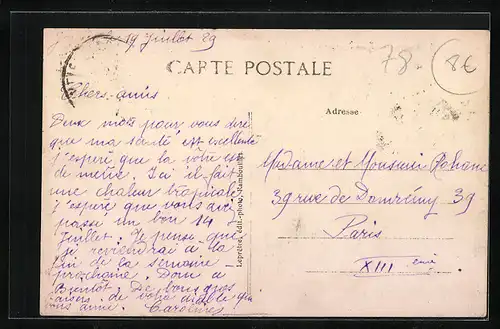 19 Juillet 29
78- 8€
CARTE POSTALE
Chers amis
Adresse
Deux mots pour vous dire
que ma santé est excellente
j'espère que la votre est
de même. Ici il fait
une chaleur tropicale
j'espère que vous avez
passé un bon 14
Juillet. Je pense que
je reviendrai à la
fin de la semaine
prochaine. Donc à
Bientôt. De bons gros
baisers de votre
amie.
Madame et Monsieur
39 rue de Domrémy 39
Paris
XIII eme
Leprêtre, édit.-photo, Rambouillet